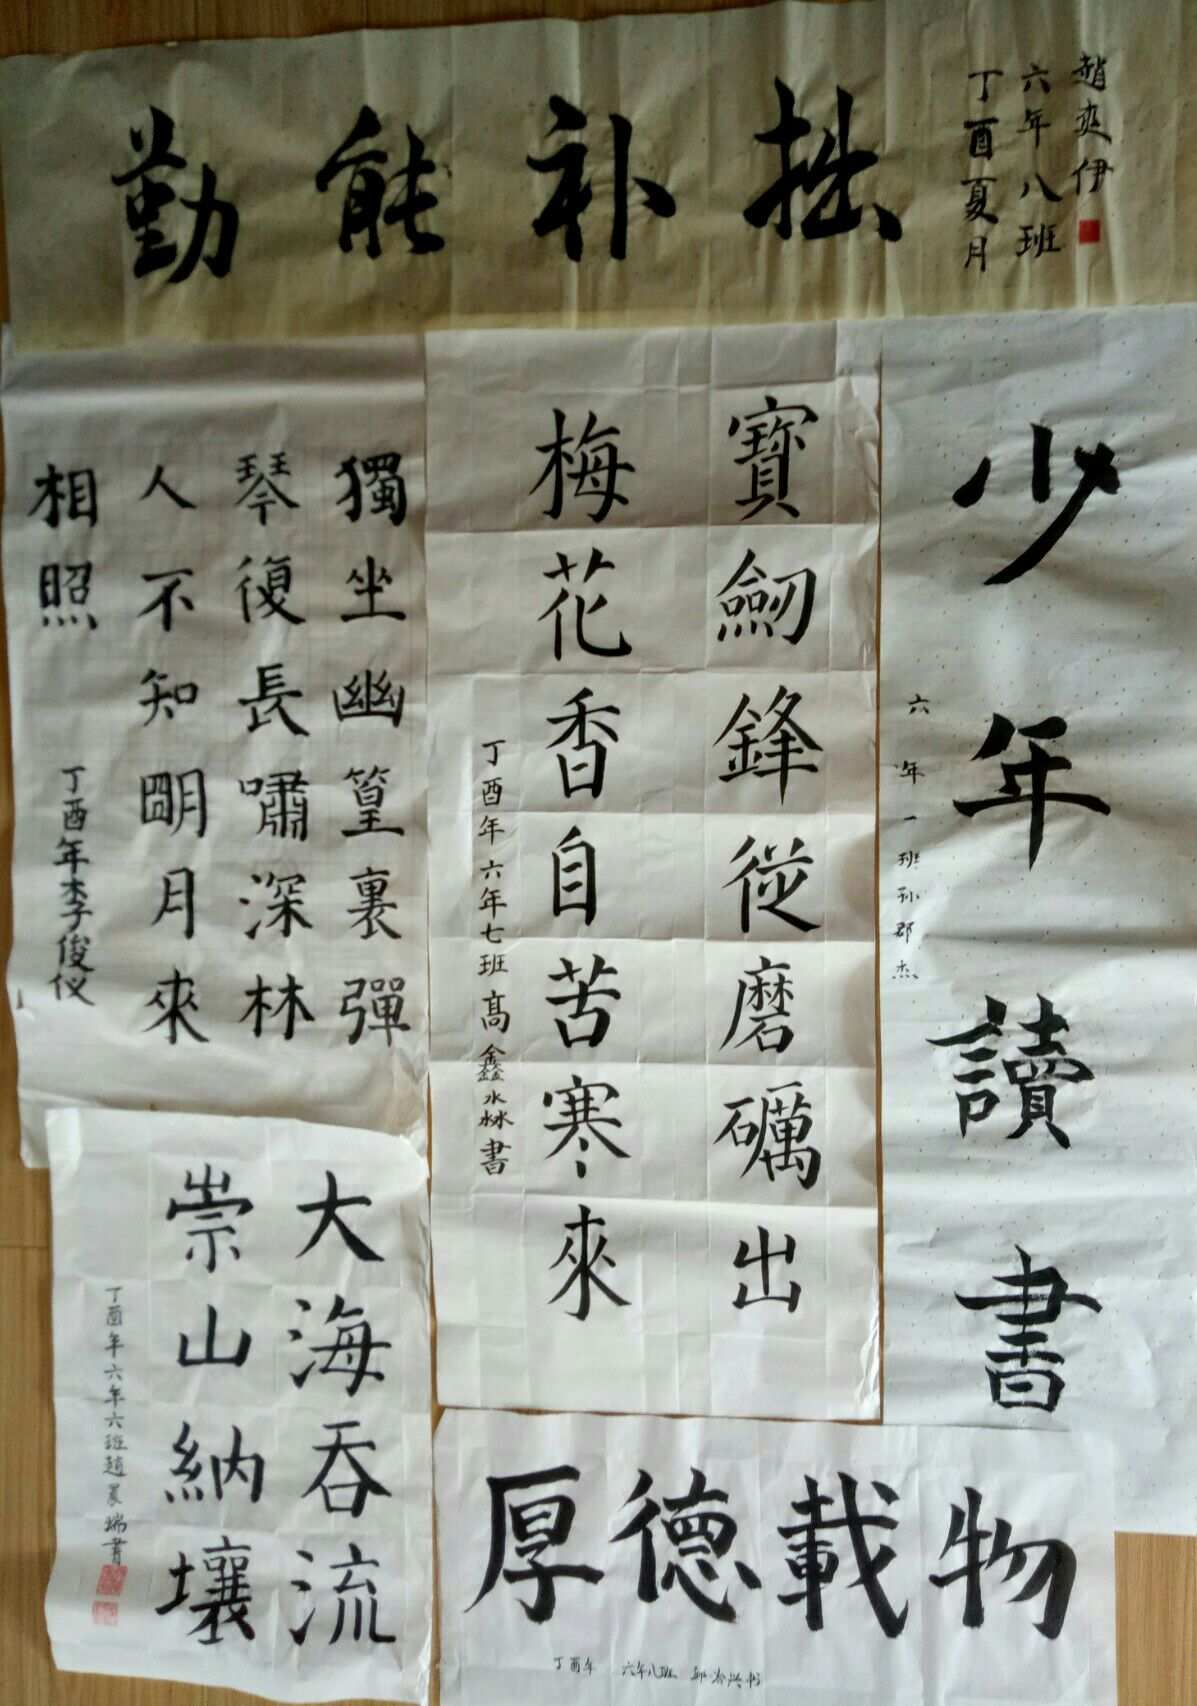 勤能补拙
丁酉夏月
六年八班
趙爽伊
獨坐幽篁裏彈
琴復長嘯深林
人不知朙月來
相照
丁酉年李俊仪
寶劒鋒從磨礪出
梅花香自苦寒來
丁酉年六年七班高鑫淼書
少年讀書
六年一班孙郡杰
大海吞流
崇山納壤
丁酉年六年六班趙晨瑞書
厚德載物
丁酉年 六年八班